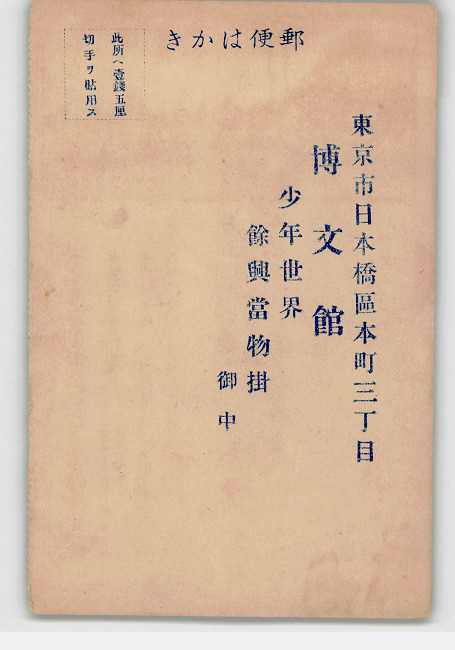 きかは便郵
此所ヘ壹錢五厘
切手ヲ貼用ス
東京市日本橋區本町三丁目
博文館
少年世界
餘興當物掛
御中